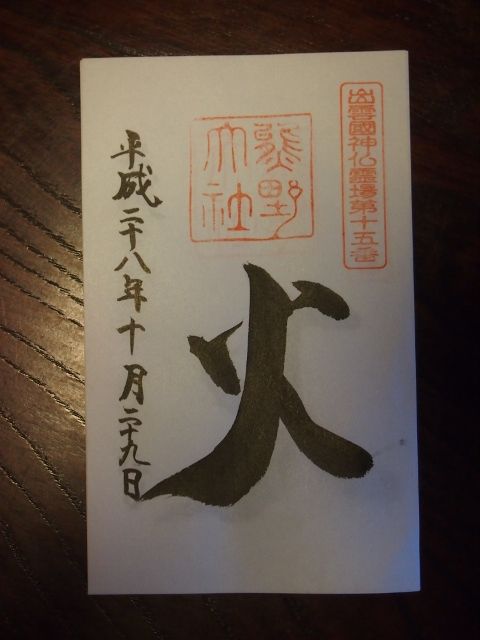 出雲國神仏霊場第十五番
熊野
大社
火
平成二十八年十月二十九日